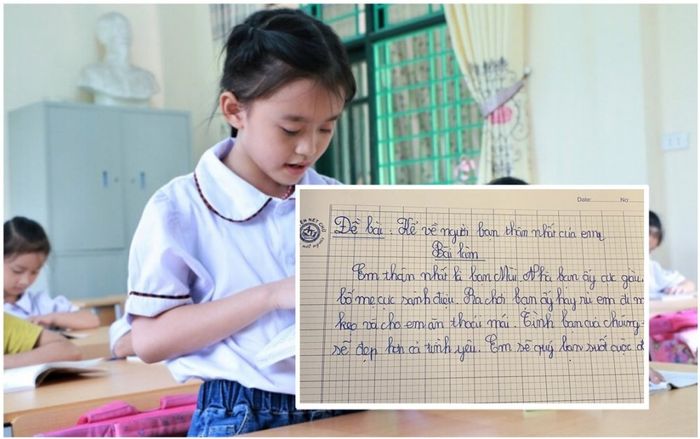 Date: No
Đề bài : Kể về người bạn thân nhất của em
Bài làm
Em thân nhất là bạn Mùi. Nhà bạn ấy cực giàu
bố mẹ cực sành điệu. Ra chơi bạn ấy hay rủ em đi m
kẹo và cho em ăn thoải mái. Tình bạn của chúng
sẽ đẹp hơn cả tình yêu. Em sẽ quý bạn suốt cuộc đ